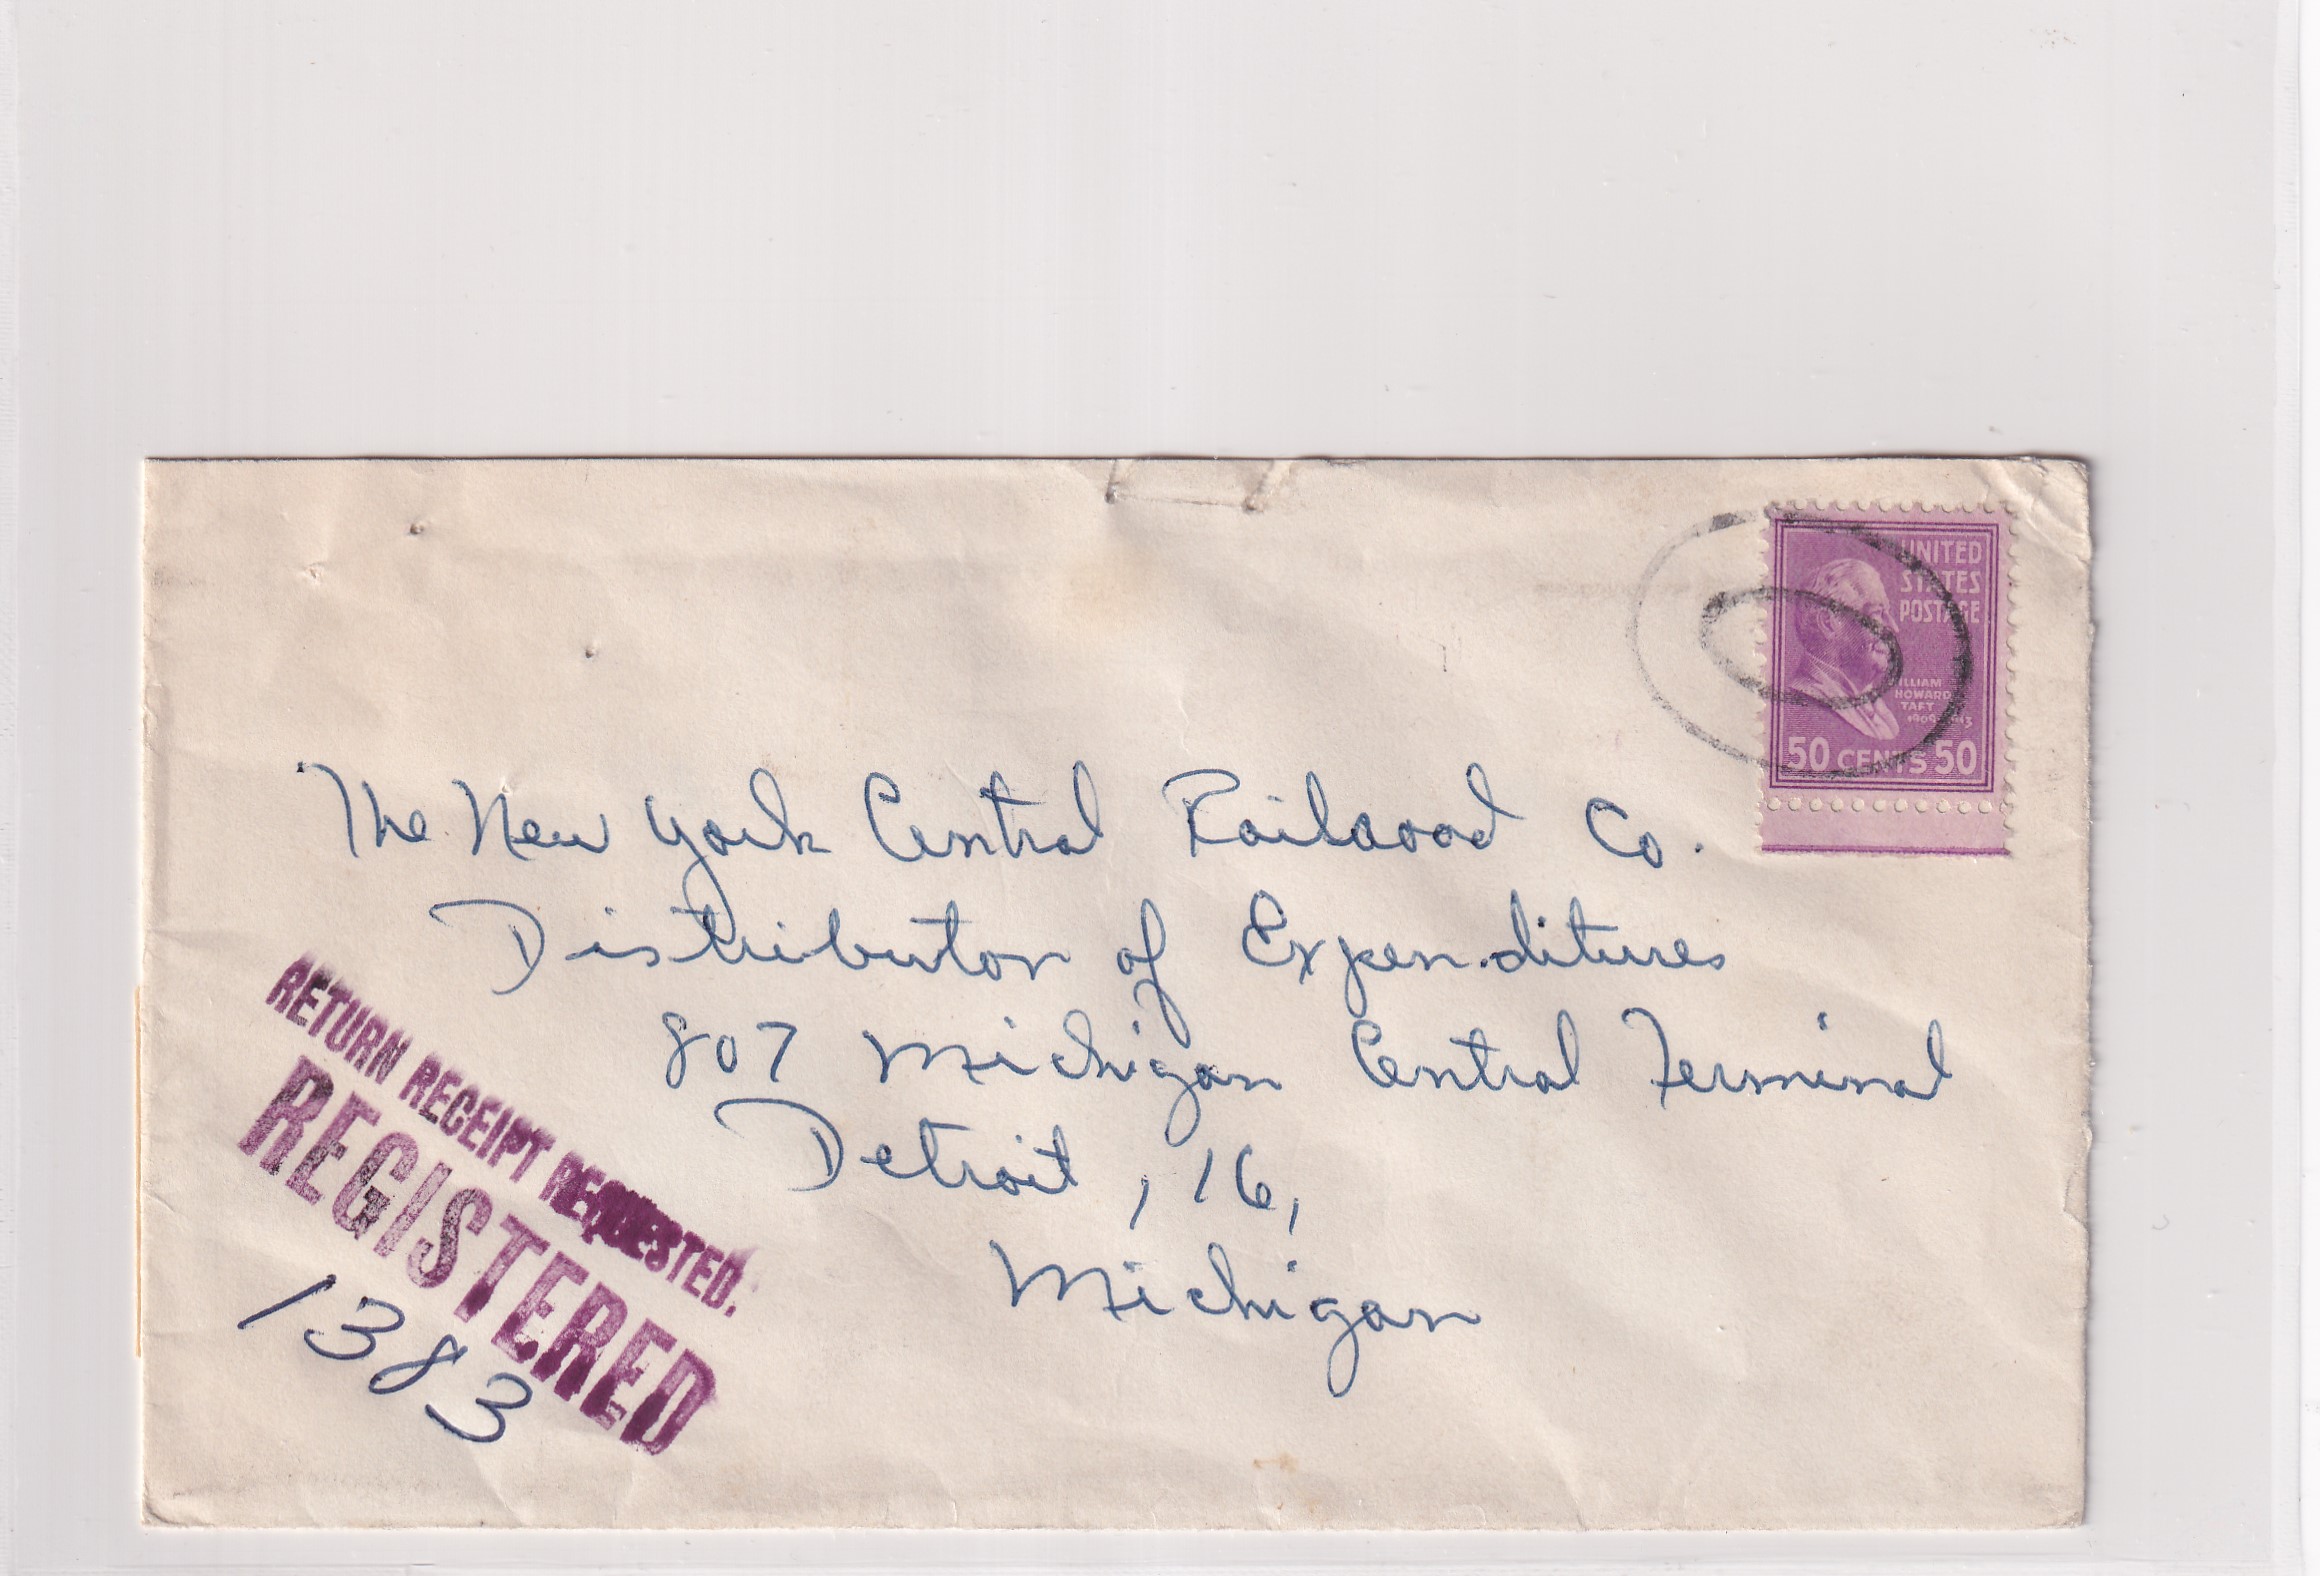 UNITED
STATES
POSTAGE
WILLIAM
HOWARD
TAFT
1909-1913
50 CENTS 50
The New York Central Railroad Co.
Distributor of Expenditures
807 Michigan Central Terminal
Detroit, 16,
Michigan
RETURN RECEIPT REQUESTED.
REGISTERED
1383